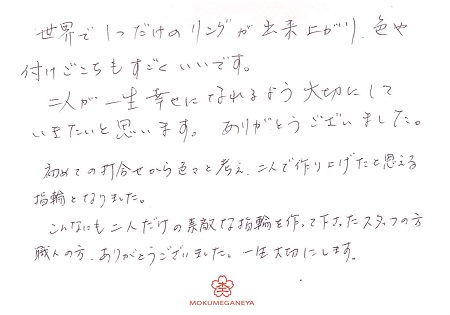 世界で1つだけのリングが出来上がり、色や
付けごこちもすごくいいです。
二人が一生幸せになれるよう大切にして
いきたいと思います。ありがとうございました。
初めての打合せから色々と考え、二人で作り上げたと思える
指輪となりました。
こんなにも二人だけの素敵な指輪を作って下さったスタッフの方
職人の方、ありがとうございました。一生大切にします。
MOKUMEGANEYA